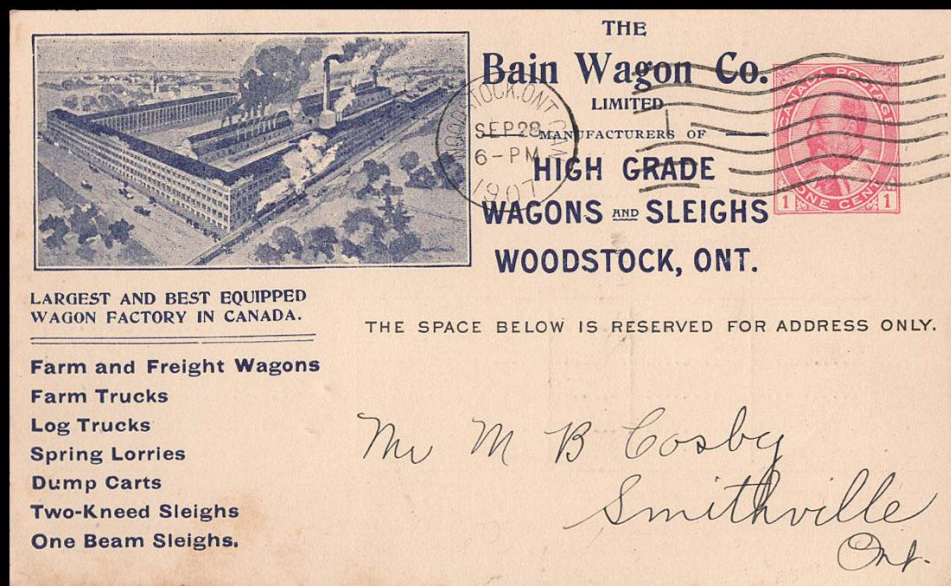 THE
Bain Wagon Co.
LIMITED
MANUFACTURERS OF
HIGH GRADE
WAGONS AND SLEIGHS
WOODSTOCK, ONT.
WOODSTOCK, ONT. CAN
SEP 28
6-PM
1907
CANADA POSTAGE
1 ONE CENT 1
LARGEST AND BEST EQUIPPED
WAGON FACTORY IN CANADA.
THE SPACE BELOW IS RESERVED FOR ADDRESS ONLY.
Farm and Freight Wagons
Farm Trucks
Log Trucks
Spring Lorries
Dump Carts
Two-Kneed Sleighs
One Beam Sleighs.
Mr M B Cosby
Smithville
Ont.